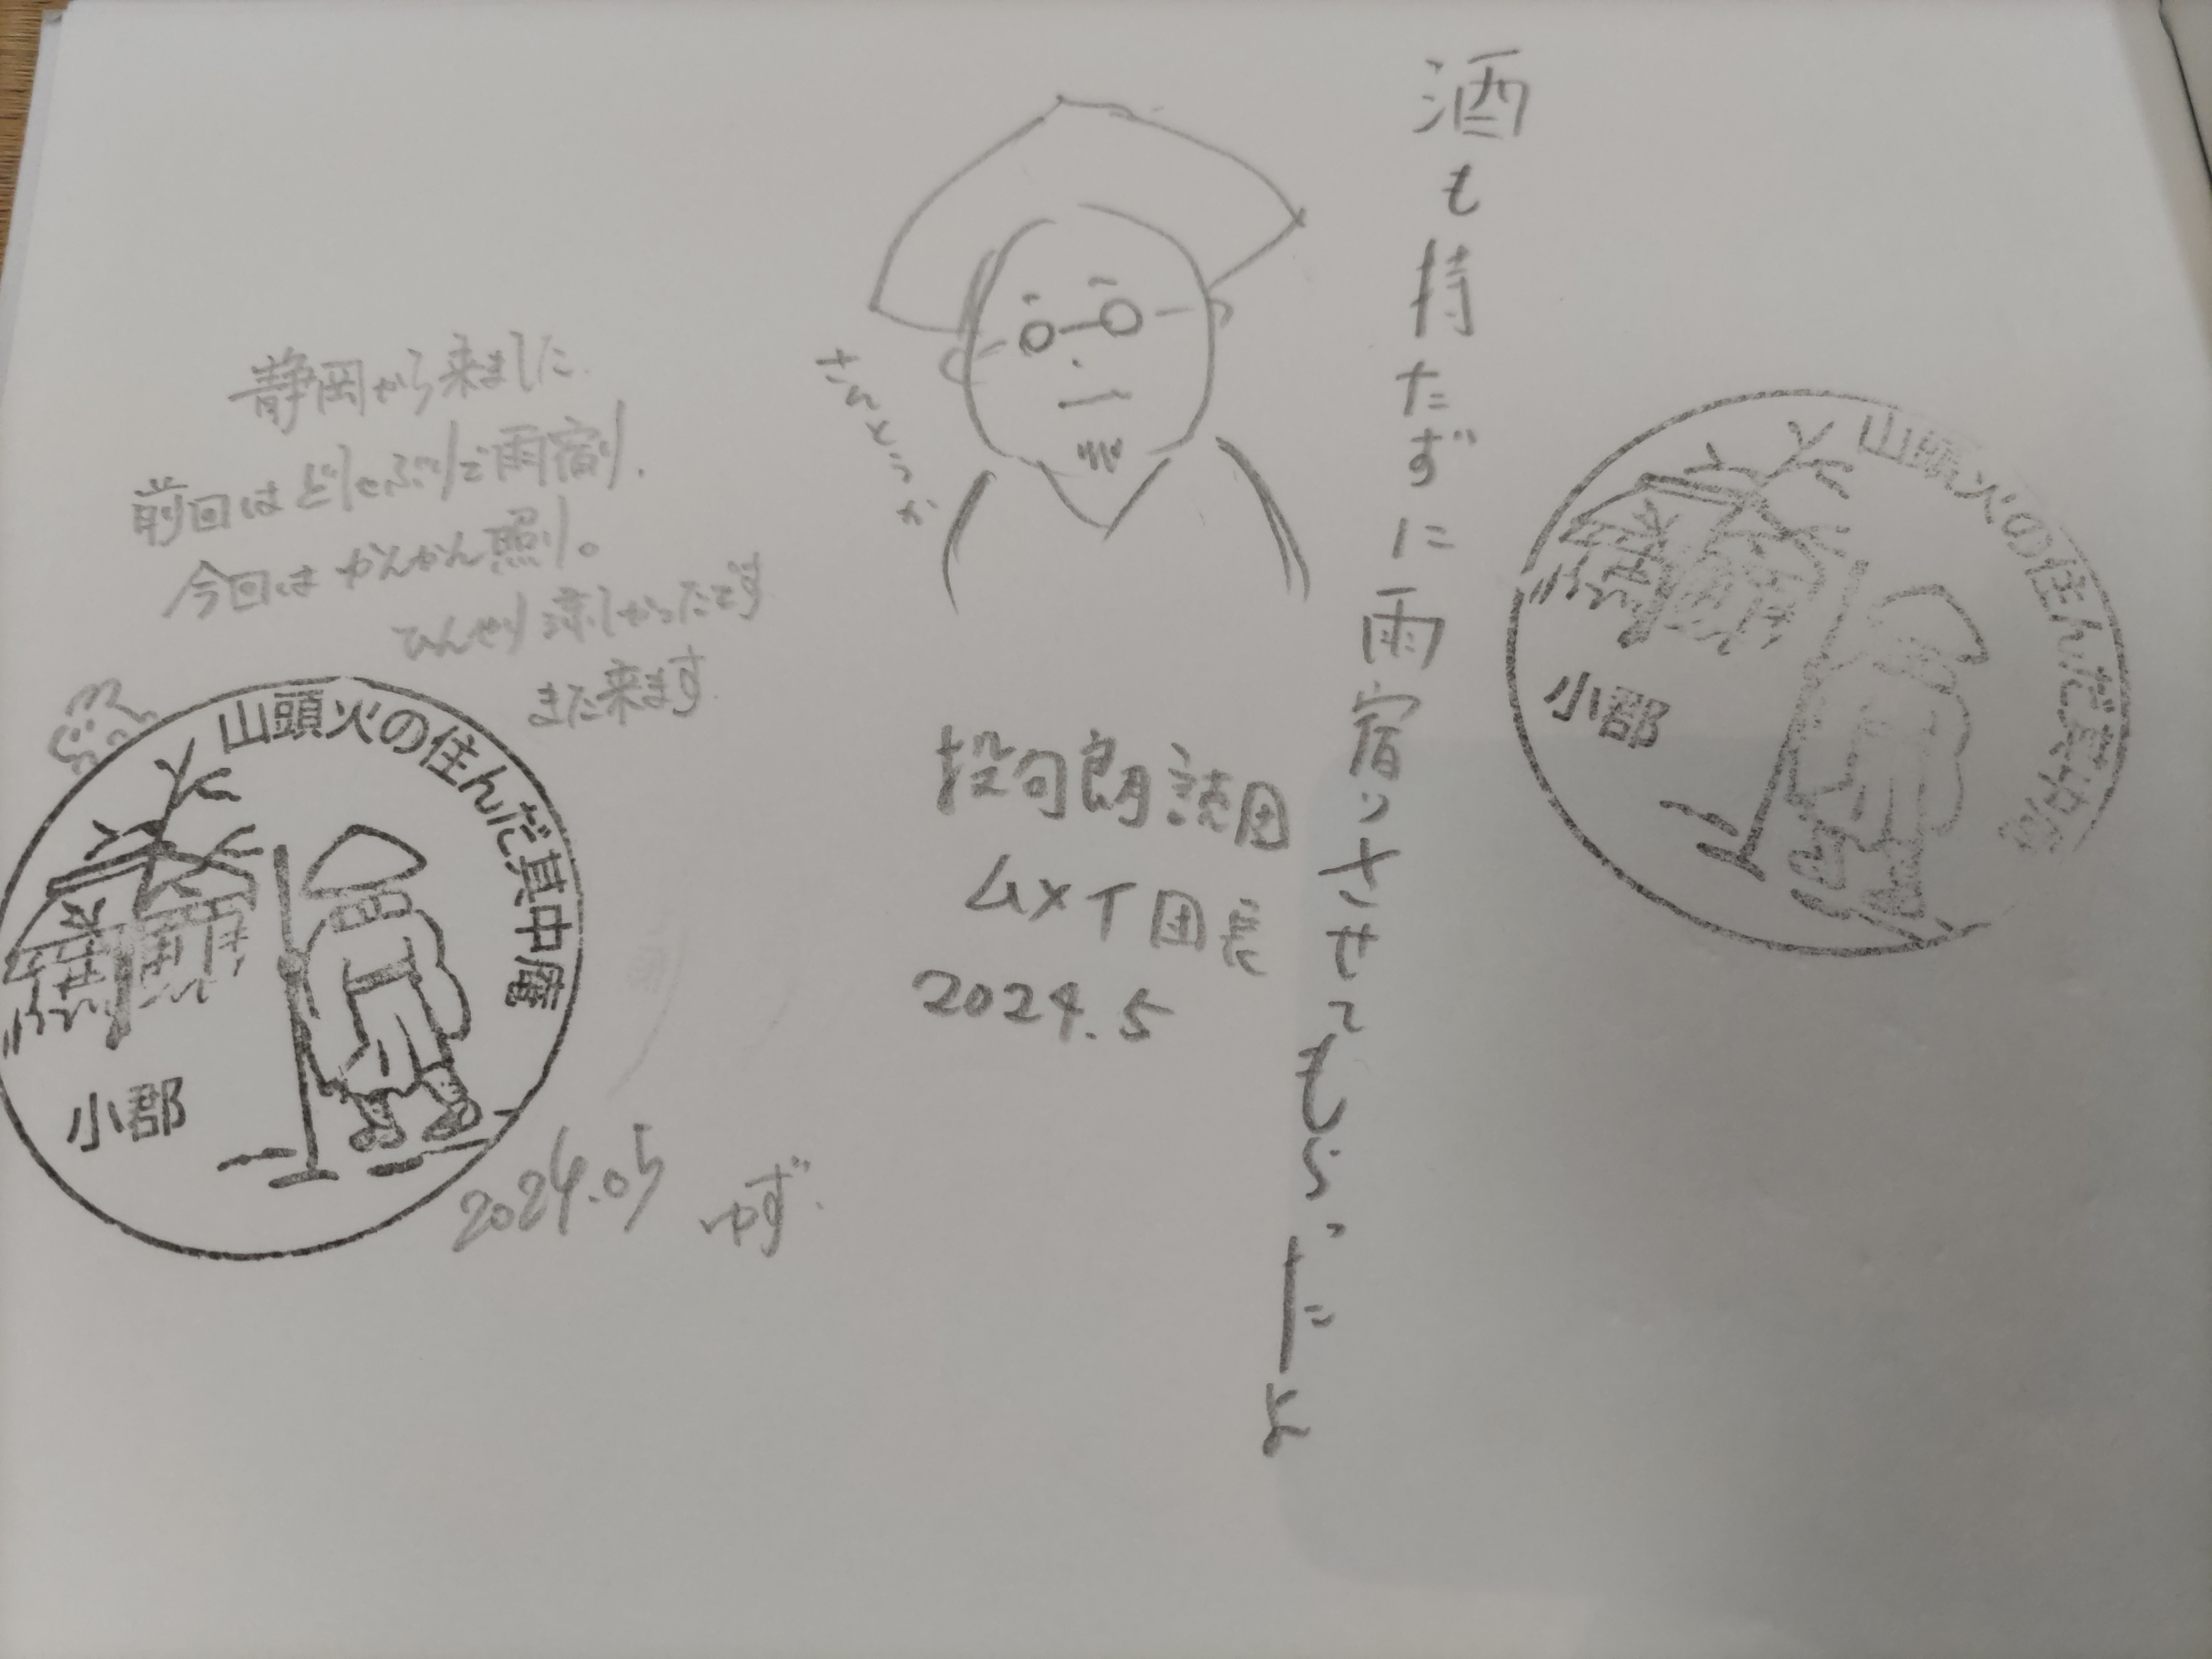 酒も持たずに雨宿りさせてもらったよ
さんとうか
投句朗読団
ムメイ団長
2024.5
山頭火の住んだ其中庵
小郡
静岡から来ました.
前回はどしゃぶりで雨宿り.
今回はかんかん照り。
ひんやり涼しかったです
また来ます.
山頭火の住んだ其中庵
小郡
2024.05 ゆず.